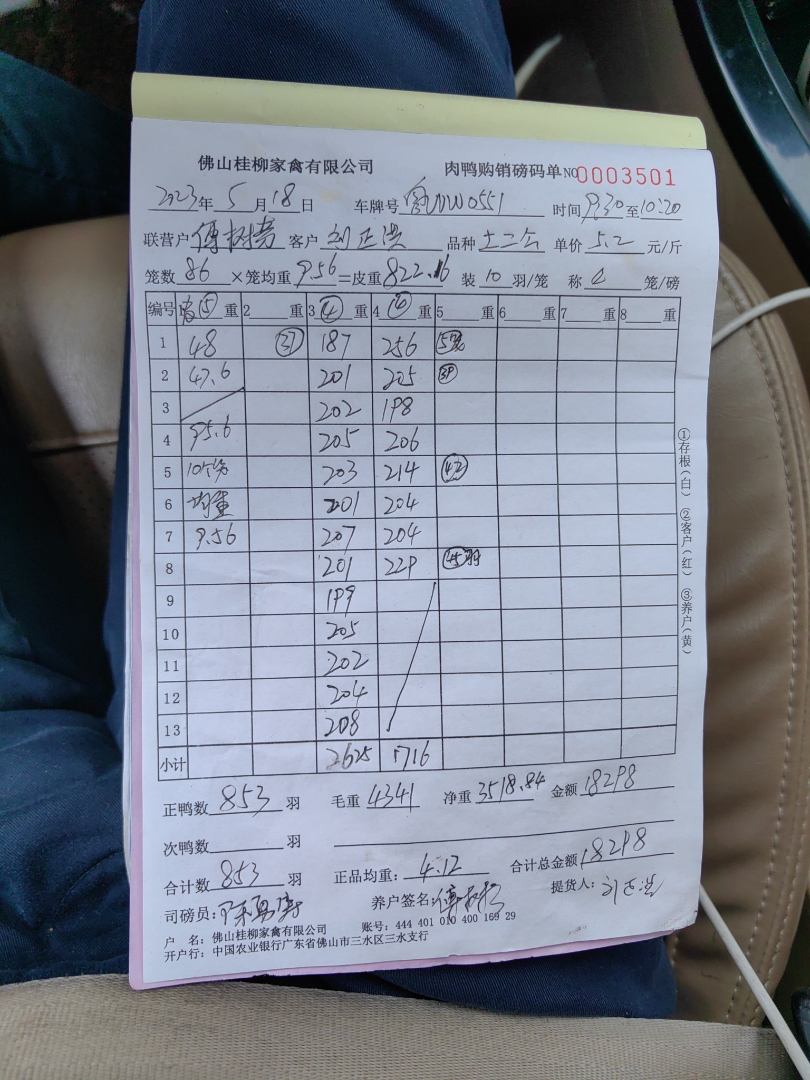 佛山桂柳家禽有限公司 肉鸭购销磅码单 NO 0003501
2023年 5月18日 车牌号 粤UW0551 时间 9:30至10:20
联营户 傅树 客户 刘正洪 品种 土二公 单价 5.2 元/斤
笼数 86 ×笼均重 9.56 =皮重 822.16 装 10 羽/笼 称 4 笼/磅
编号 1 ⑤ 重 2 重 3 ④ 重 4 重 5 重 6 重 7 重 8 重
1 48 187 256
2 47.6 201 205 39
3 202 198
4 95.6 205 206
5 10个笼 203 214 42
6 均重 201 204
7 9.56 207 204
8 201 229 45羽
9 199
10 205
11 202
12 204
13 208
小计 2625 1716
正鸭数 853 羽 毛重 4341 净重 3518.84 金额 18298
次鸭数 羽
合计数 853 羽 正品均重: 4.12 合计总金额 18298
司磅员: 陈 养户签名: 提货人: 刘正洪
户 名: 佛山桂柳家禽有限公司 账号: 444 401 010 400 169 29
开户行: 中国农业银行广东省佛山市三水区三水支行
①存根(白) ②客户(红) ③养户(黄)